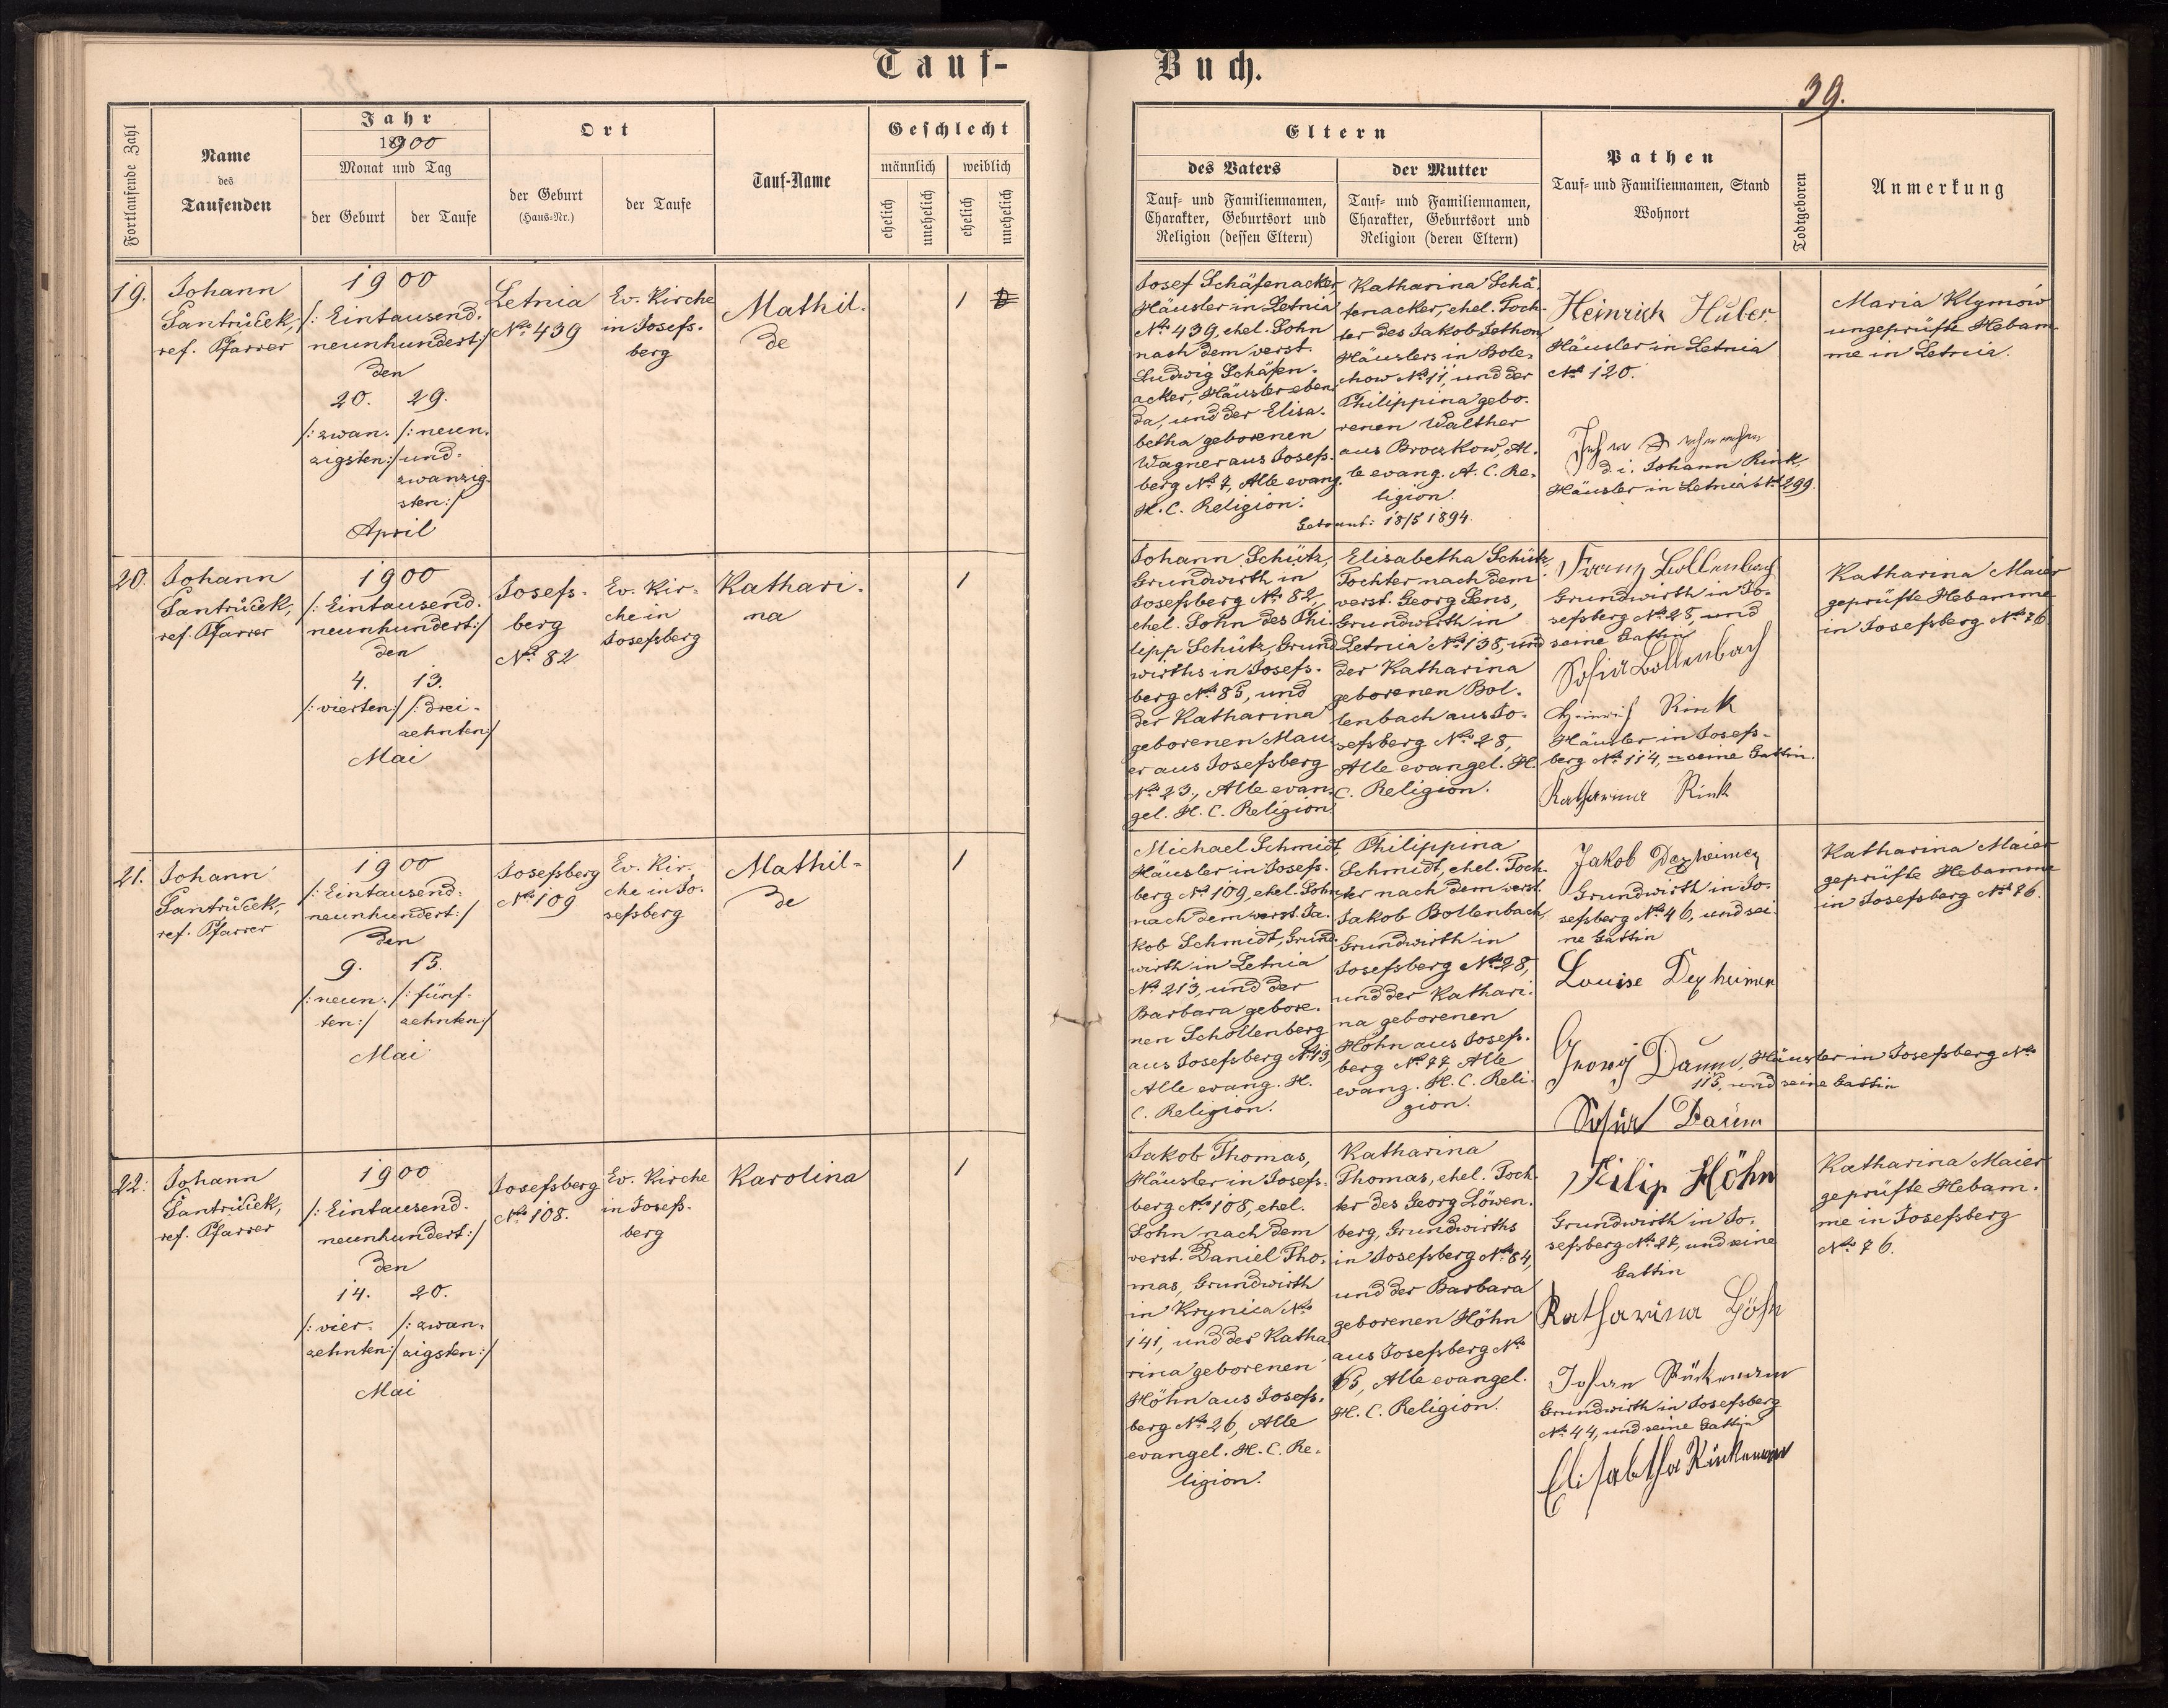 Tauf-
Buch.
39.
Fortlaufende Zahl
Name
des
Taufenden
Jahr
1900
Monat und Tag
der Geburt
der Taufe
Ort
der Geburt
(Haus-Nr.)
der Taufe
Tauf-Name
Geschlecht
männlich
weiblich
ehelich
unehelich
ehelich
unehelich
Eltern
des Vaters
Tauf- und Familiennamen,
Charakter, Geburtsort und
Religion (dessen Eltern)
der Mutter
Tauf- und Familiennamen,
Charakter, Geburtsort und
Religion (deren Eltern)
Pathen
Tauf- und Familiennamen, Stand
Wohnort
Todtgeboren
Anmerkung
19.
Johann
Jantrůček,
ref. Pfarrer
1900
/: Eintausend.
neunhundert:/
den
20. 29.
/: zwan. /: neun.
zigsten:/ und-
zwanzig-
sten:/
April
Letnia
No. 439
Ev. Kirche
in Josefs.
berg
Mathil.
de
1
Josef Schäfenacker
Häusler in Letnia
No. 439, ehel. Sohn
nach dem verst.
Ludwig Schäfen.
acker, Häusler eben
da, und der Elisa.
betha geborenen
Wagner aus Josefs.
berg No. 7, Alle evang.
H. C. Religion.
Katharina Schä.
fenacker, ehel. Toch.
ter des Jakob Jethon
Häuslers in Bole.
chow No. 11, und der
Philippina gebo.
renen Walther
aus Broczkow, Al.
le evang. A. C. Re.
ligion.
Getraut: 18/5 1894.
Heinrich Huber
Häusler in Letnia
No. 120.
d. i. Johann Rink,
Häusler in Letnia No. 299.
Maria Klymów
ungeprüfte Hebam.
me in Letnia.
20.
Johann
Jantrůček,
ref. Pfarrer
1900
/: Eintausend.
neunhundert:/
den
4. 13.
/: vierten:/ /: drei-
zehnten:/
Mai
Josefs-
berg
No. 82
Ev. Kir-
che in
Josefsberg
Kathari.
na
1
Johann Schütz,
Grundwirth in
Josefsberg No. 82,
ehel. Sohn des Phi.
lipp Schütz, Grund
wirths in Josefs.
berg No. 85, und
der Katharina
geborenen Mau.
er aus Josefsberg
No. 23., Alle evan.
gel. H. C. Religion.
Elisabetha Schütz,
Tochter nach dem
verst. Georg Jens,
Grundwirth in
Letnia No. 138, und
der Katharina
geborenen Bol.
lenbach aus Jo.
sefsberg No. 28,
Alle evangel. H.
C. Religion.
Franz Bollenbach
Grundwirth in Jo.
sefsberg No. 28, und
seine Gattin
Sofia Bollenbach
Heinrich Rink
Häusler in Josefs-
berg No. 114, u seine Gattin.
Katharina Rink
Katharina Maier
geprüfte Hebamme
in Josefsberg No. 76
21.
Johann
Jantrůček,
ref. Pfarrer
1900
/: Eintausend.
neunhundert:/
den
9. 15.
/: neun. /: fünf-
ten:/ zehnten:/
Mai
Josefsberg
No. 109
Ev. Kir.
che in Jo.
sefsberg
Mathil-
de
1
Michael Schmidt
Häusler in Josefs.
berg No. 109, ehel. Sohn
nach dem verst. Ja.
kob Schmidt, Grund.
wirth in Letnia
No. 213, und der
Barbara gebore.
nen Schollenberg
aus Josefsberg No. 13,
Alle evang. H.
C. Religion.
Philippina
Schmidt, ehel. Toch.
ter nach dem verst.
Jakob Bollenbach,
Grundwirth in
Josefsberg No. 28,
und der Kathari.
na geborenen
Höhn aus Josefs.
berg No. 77, Alle
evang. H. C. Reli.
gion.
Jakob Dexheimer
Grundwirth in Jo.
sefsberg No. 46, und sei.
ne Gattin
Louise Dexheimer
Georg Daum, Häusler in Josefsberg No.
115, und seine Gattin
Sofia Daum
Katharina Maier
geprüfte Hebamme
in Josefsberg No. 76.
22.
Johann
Jantrůček,
ref. Pfarrer
1900
/: Eintausend.
neunhundert:/
den
14. 20.
/: vier. /: zwan.
zehnten:/ zigsten:/
Mai
Josefsberg
No. 108.
Ev. Kirche
in Josefs.
berg
Karolina
1
Jakob Thomas,
Häusler in Josefs.
berg No. 108, ehel.
Sohn nach dem
verst. Daniel Tho.
mas, Grundwirth
in Krynica No.
141, und der Katha
rina geborenen
Höhn aus Josefs.
berg No. 26, Alle
evangel. H. C. Re.
ligion.
Katharina
Thomas, ehel. Toch.
ter des Georg Löwen.
berg, Grundwirths
in Josefsberg No. 64,
und der Barbara
geborenen Höhn
aus Josefsberg No.
65, Alle evangel.
H. C. Religion.
Filip Höhn
Grundwirth in Jo.
sefsberg No. 27, und seine
Gattin
Katharina Höhn
Johan Rückemann
Grundwirth in Josefsberg
No. 44, und seine Gattin
Elisabtha Rückemann
Katharina Maier
geprüfte Hebam.
me in Josefsberg
No. 76.